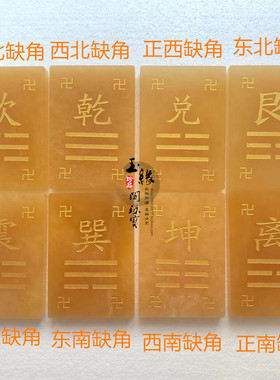 北缺角 西北缺角 正西缺角 东北缺角
坎 乾 兑 艮
震 巽 坤 离
东缺角 东南缺角 西南缺角 正南缺角